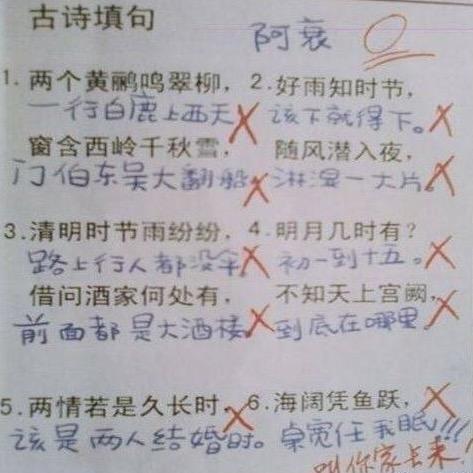 古诗填句 阿衰 0
1. 两个黄鹂鸣翠柳， 2. 好雨知时节，
一行白鹿上西天 该下就得下。
窗含西岭千秋雪， 随风潜入夜，
门伯东吴大翻船 淋湿一大片。
3. 清明时节雨纷纷， 4. 明月几时有？
路上行人都没伞 初一到十五。
借问酒家何处有， 不知天上宫阙，
前面都是大酒楼。 到底在哪里。
5. 两情若是久长时， 6. 海阔凭鱼跃，
该是两人结婚时。 桌宽任我眠!!!
叫你家长来!